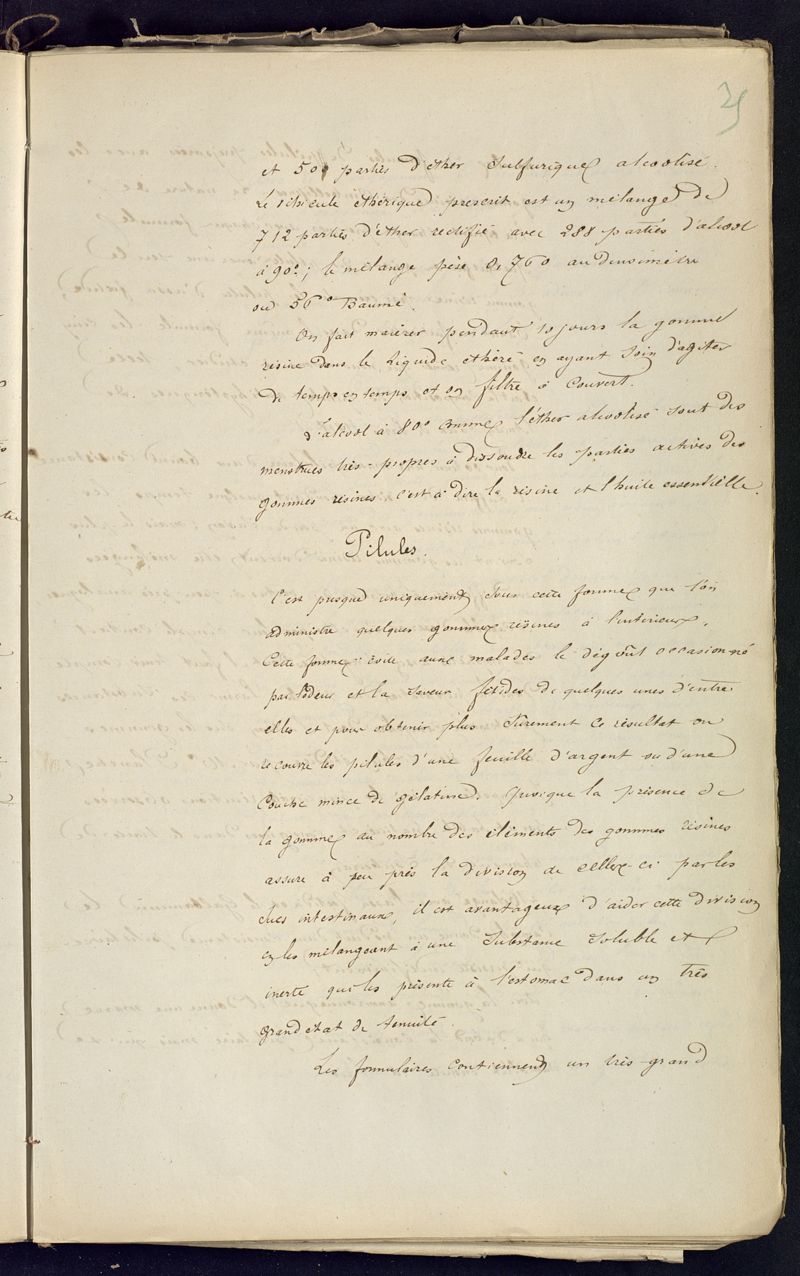 25
et 50 parties d'éther Sulfurique alcoolisé.
Le véhicule éthérique prescrit est un mélange de
712 parties d'éther rectifié avec 288 parties d'alcool
à 90°; le mélange pèse 0,760 au densimètre
ou 56° Baumé.
On fait macérer pendant 10 jours la gomme
résine dans le liquide éthéré en ayant soin d'agiter
de temps en temps et on filtre à couvert.
L'alcool à 80° comme l'éther alcoolisé sont des
menstrues très-propres à dissoudre les parties actives des
gommes résines c'est à dire la résine et l'huile essentielle.
Pilules.
C'est presque uniquement sous cette forme que l'on
administre quelques gommes résines à l'intérieur.
Cette forme évite aux malades le dégoût occasionné
par l'odeur et la saveur fétides de quelques unes d'entre
elles et pour obtenir plus surement ce résultat on
recouvre les pilules d'une feuille d'argent ou d'une
couche mince de gélatine. Quoique la présence de
la gomme au nombre des éléments des gommes résines
assure à peu près la division de celles ci par les
sucs intestinaux, il est avantageux d'aider cette division
en les mélangeant à une substance soluble et
inerte qui les présente à l'estomac dans un très
grand état de tenuité.
Les formulaires contiennent un très-grand